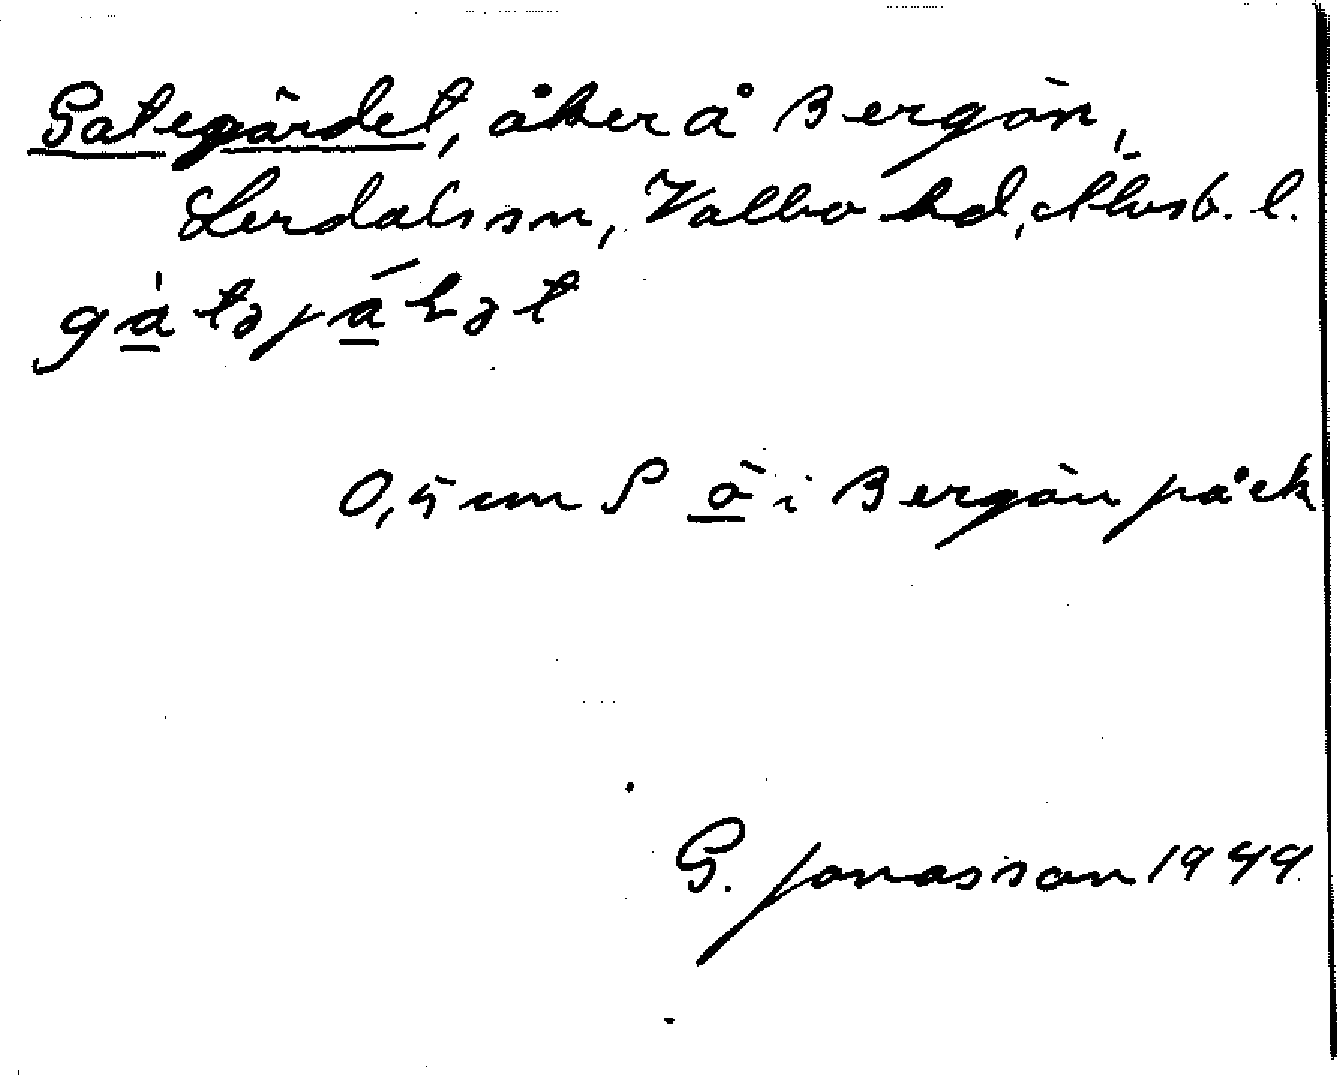 Gategärdet, åker å Bergön,
Lerdals sn, Valbo hd, Älvsb. l.
0,5 cm S ö i Bergön på ek
G. Jonasson 1949